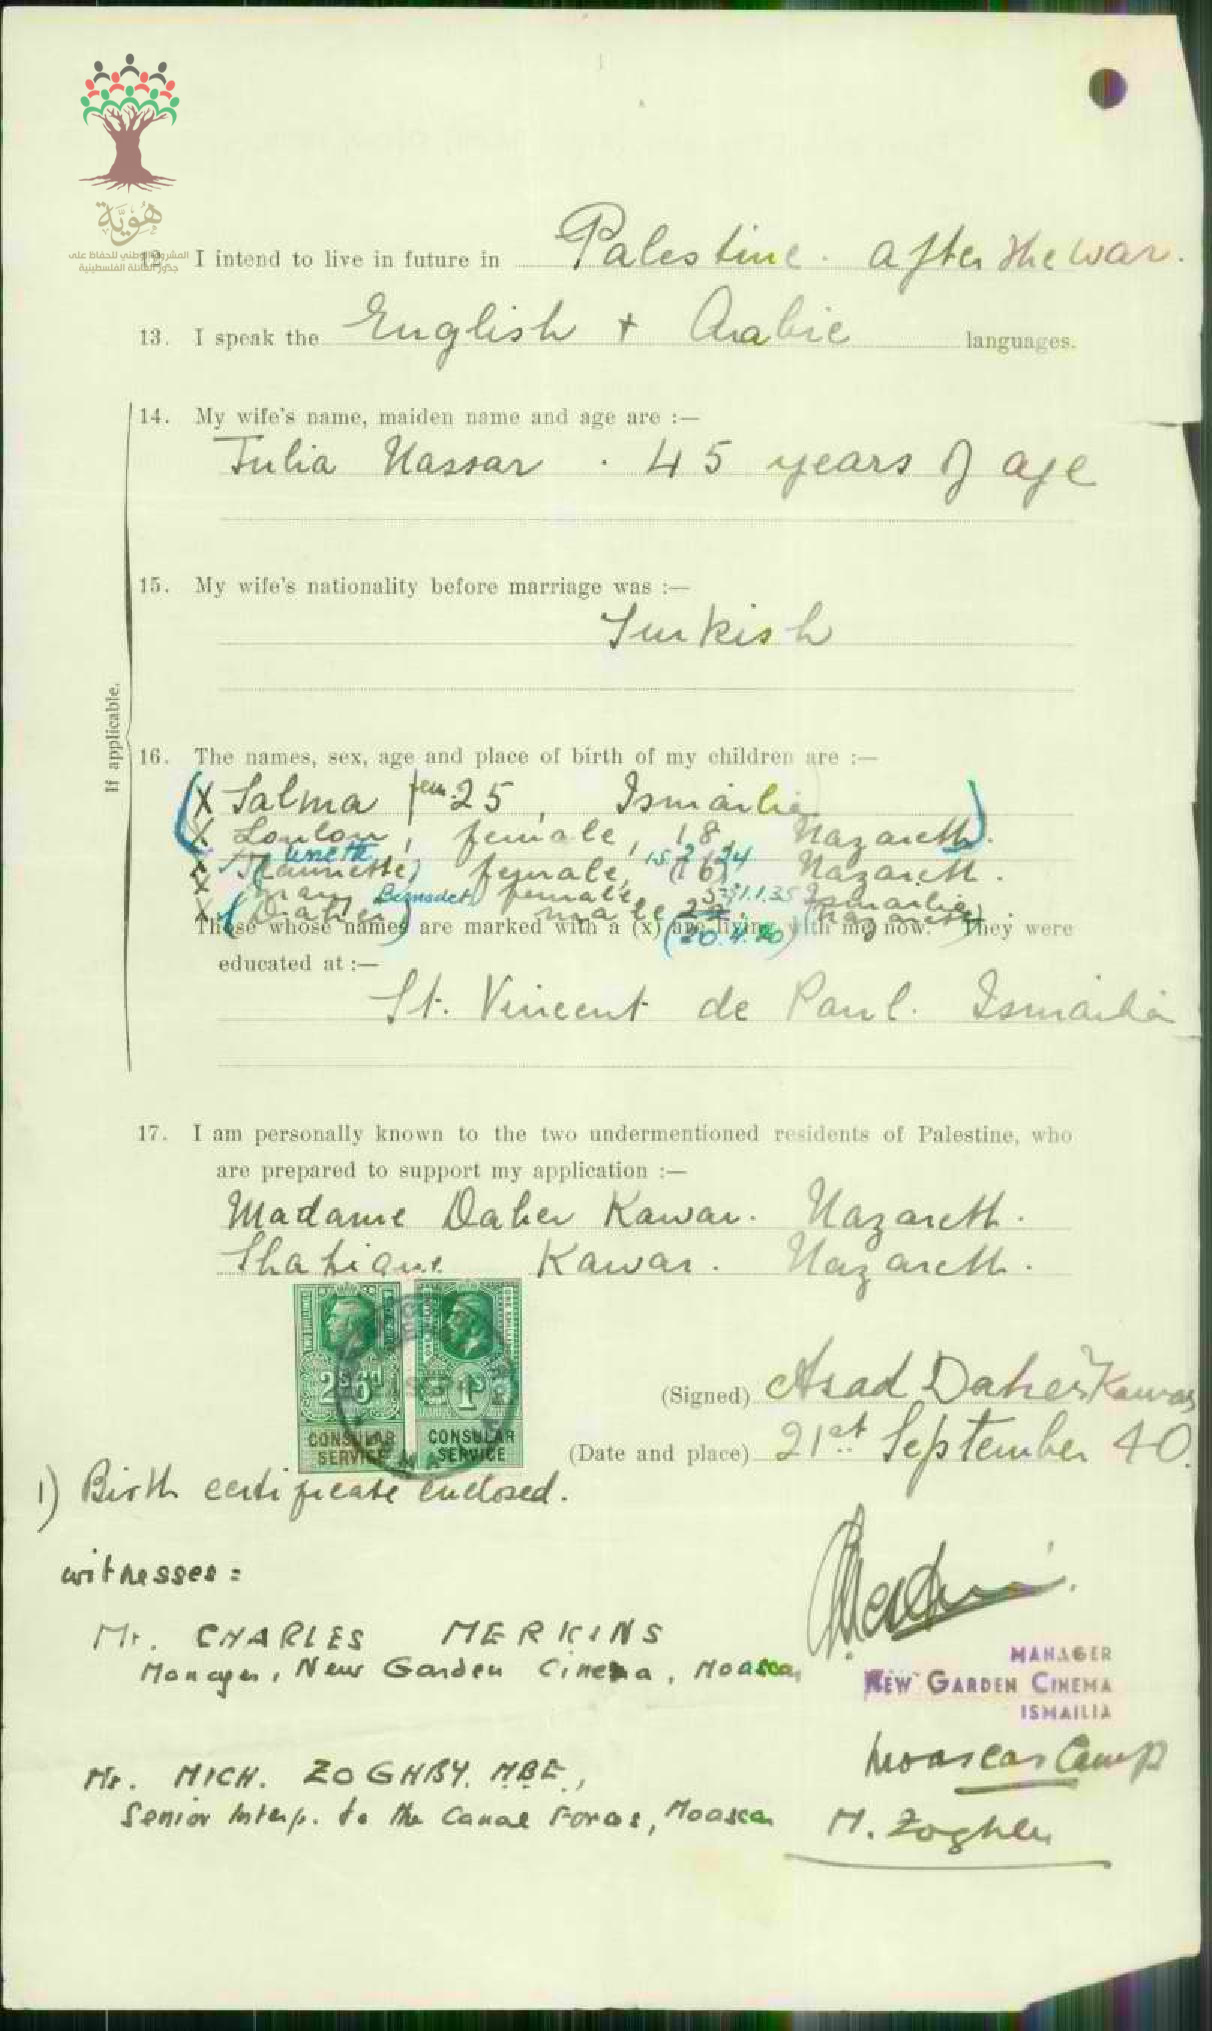 هوية
المشروع الوطني للحفاظ على
جذور العائلة الفلسطينية
12. I intend to live in future in Palestine. after the war.
13. I speak the English + Arabic languages.
If applicable.
14. My wife's name, maiden name and age are :—
Julia Nassar . 45 years of age
15. My wife's nationality before marriage was :—
Turkish
16. The names, sex, age and place of birth of my children are :—
(X Salma fem. 25, Ismailia
X Loulou, female, 18, Nazareth).
X female, (16) Nazareth.
X Mary Bernadet female 5 31.1.35 Ismailia
X (Daher) male 22. (Nazareth)
Those whose names are marked with a (x) are living with me now. They were
(20.4.20)
educated at :—
St. Vincent de Paul. Ismailia
17. I am personally known to the two undermentioned residents of Palestine, who
are prepared to support my application :—
Madame Daher Kawar. Nazareth.
Shafique Kawar. Nazareth.
2s 6d 1s
CONSULAR SERVICE CONSULAR SERVICE
(Signed) Asad Daher Kawar
(Date and place) 21st September 40.
1) Birth certificate enclosed.
witnesses =
Mr. CHARLES MERKINS
Manager, New Garden Cinema, Moascar
MANAGER
NEW GARDEN CINEMA
ISMAILIA
Moascar Camp
Mr. MICH. ZOGHBY. MBE.,
Senior Interp. to the Canal Forces, Moascar
M. Zoghby